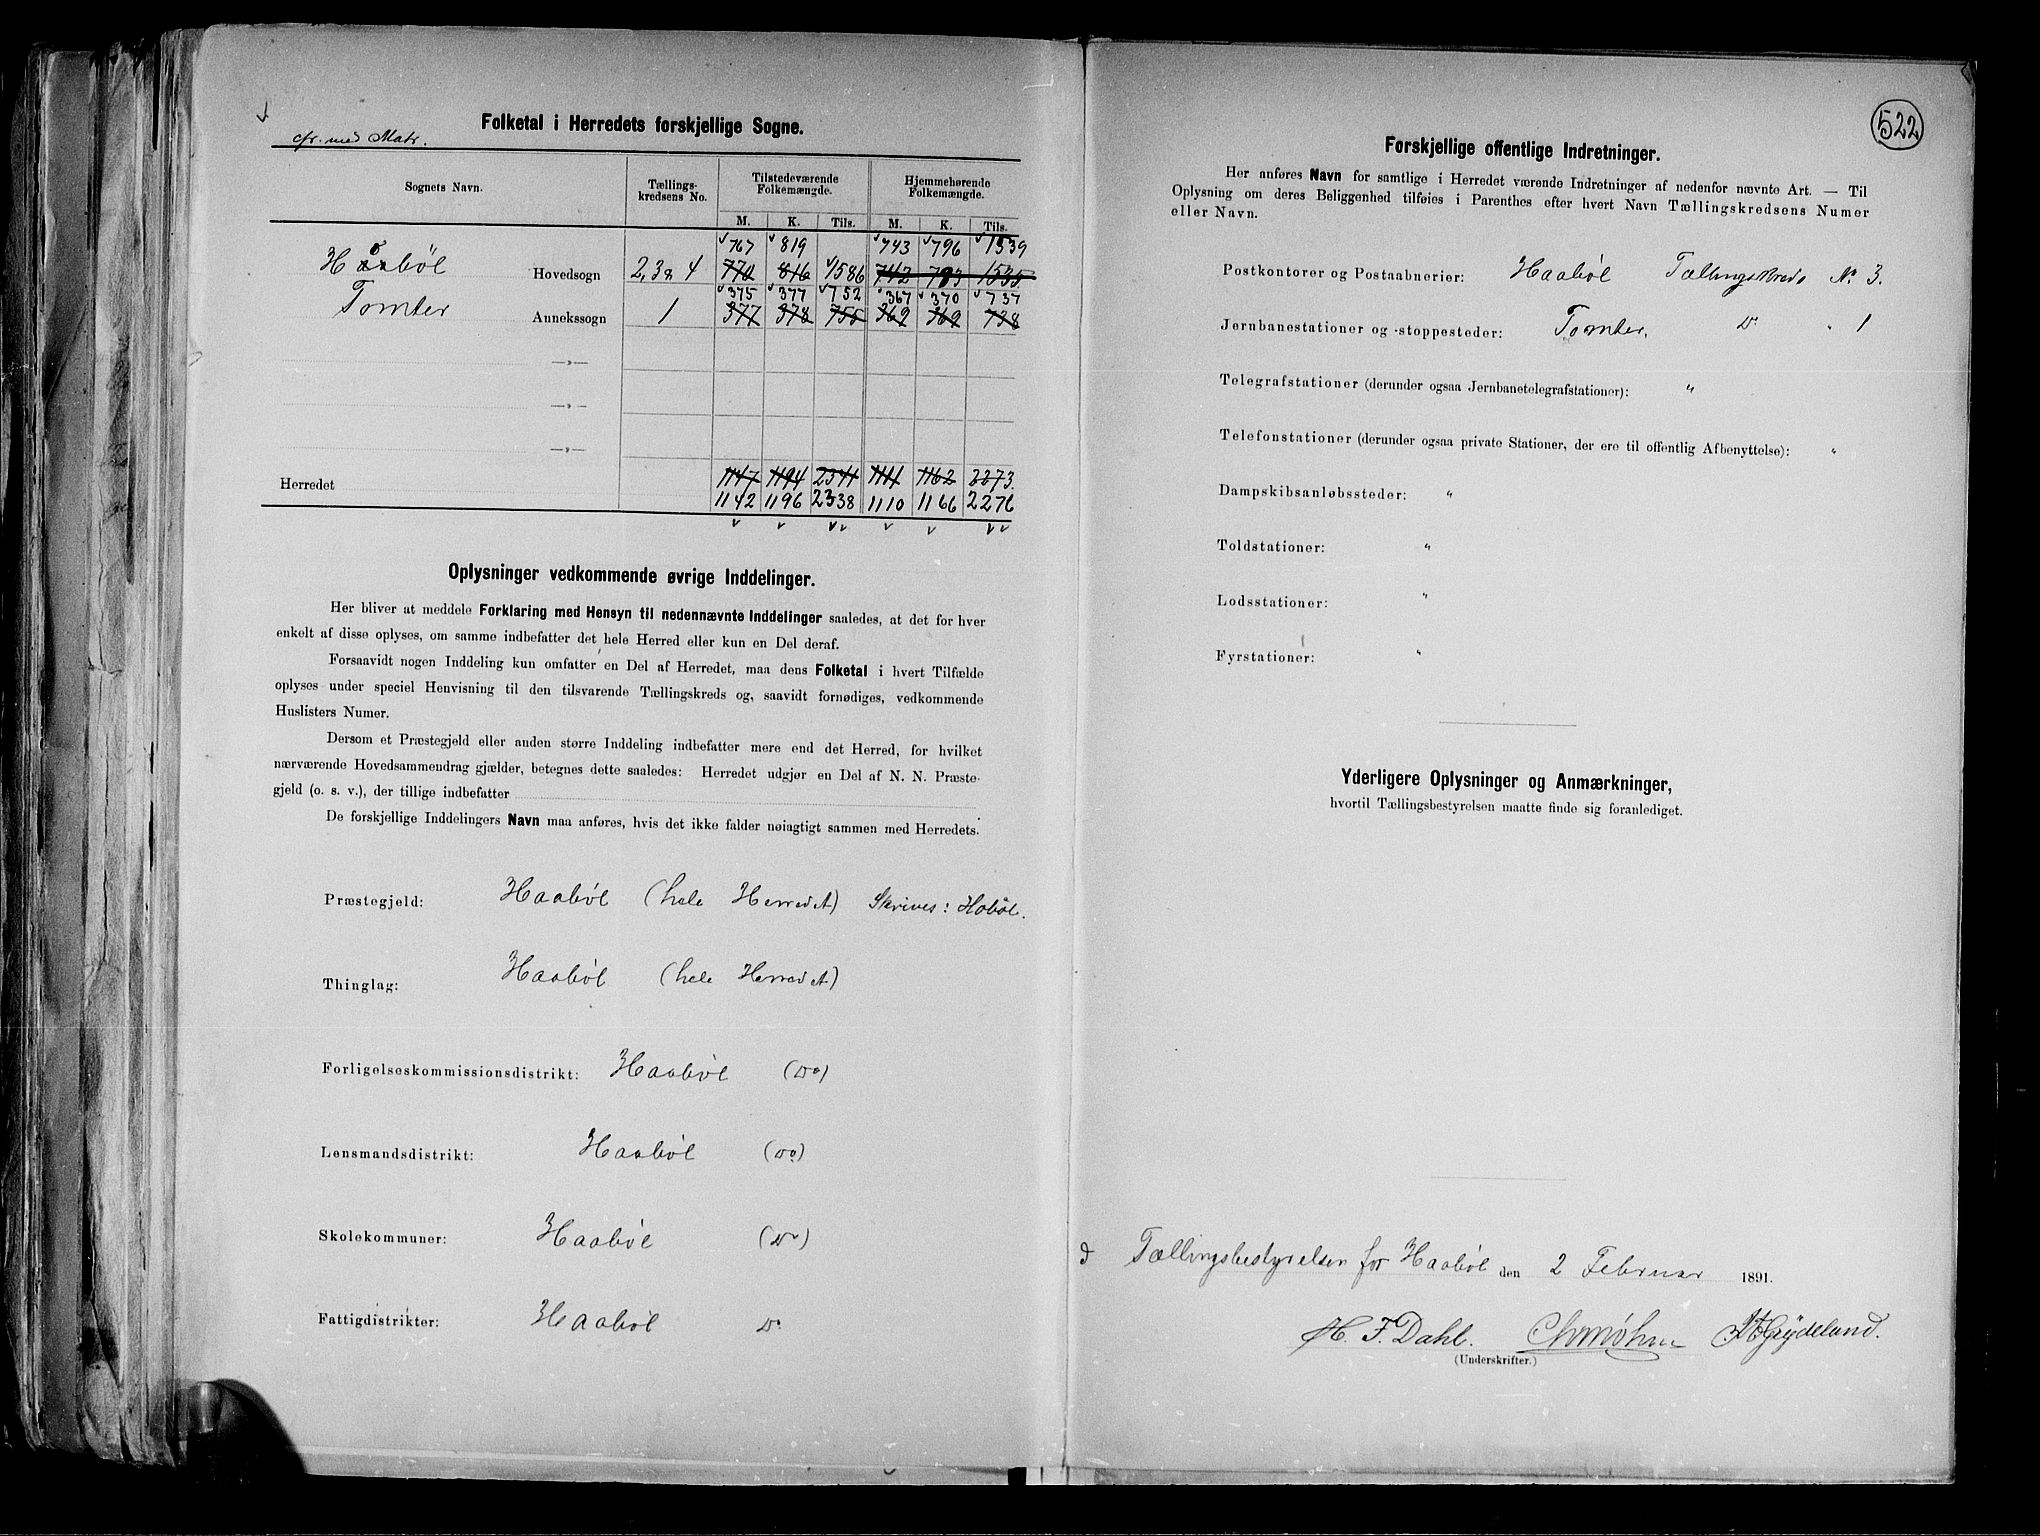 Folketal i Herredets forskjellige Sogne.
cfr. med Matr.
Sognets Navn.
Tællings-
kredsens No.
Tilstedeværende
Folkemængde.
Hjemmehørende
Folkemængde.
M. K. Tils. M. K. Tils.
767 819 743 796 1539
Haabøl Hovedsogn 2, 3 & 4 770 816 1586 742 793 1535
375 377 752 367 370 737
Tomter Annekssogn 1 377 378 755 369 369 738
—„—
—„—
—„—
1147 1194 2341 1111 1162 2273.
Herredet
1142 1196 2338 1110 1166 2276
Oplysninger vedkommende øvrige Inddelinger.
Her bliver at meddele Forklaring med Hensyn til nedennævnte Inddelinger saaledes, at det for hver
enkelt af disse oplyses, om samme indbefatter det hele Herred eller kun en Del deraf.
Forsaavidt nogen Inddeling kun omfatter en Del af Herredet, maa dens Folketal i hvert Tilfælde
oplyses under speciel Henvisning til den tilsvarende Tællingskreds og, saavidt fornødiges, vedkommende
Huslisters Numer.
Dersom et Præstegjeld eller anden større Inddeling indbefatter mere end det Herred, for hvilket
nærværende Hovedsammendrag gjælder, betegnes dette saaledes: Herredet udgjør en Del af N. N. Præste-
gjeld (o. s. v.), der tillige indbefatter
De forskjellige Inddelingers Navn maa anføres, hvis det ikke falder nøiagtigt sammen med Herredets.
Præstegjeld: Haabøl (hele Herredet) Skrives: Hobøl.
Thinglag: Haabøl (hele Herredet)
Forligelseskommissionsdistrikt: Haabøl (Do)
Lensmandsdistrikt: Haabøl (Do)
Skolekommuner: Haabøl (Do)
Fattigdistrikter: Haabøl Do
522
Forskjellige offentlige Indretninger.
Her anføres Navn for samtlige i Herredet værende Indretninger af nedenfor nævnte Art. — Til
Oplysning om deres Beliggenhed tilføies i Parenthes efter hvert Navn Tællingskredsens Numer
eller Navn.
Postkontorer og Postaabnerier: Haabøl Tællingskreds No. 3.
Jernbanestationer og -stoppesteder: Tomter, Do " 1
Telegrafstationer (derunder ogsaa Jernbanetelegrafstationer): "
Telefonstationer (derunder ogsaa private Stationer, der ere til offentlig Afbenyttelse): "
Dampskibsanløbssteder: "
Toldstationer: "
Lodsstationer: "
Fyrstationer: "
Yderligere Oplysninger og Anmærkninger,
hvortil Tællingsbestyrelsen maatte finde sig foranlediget.
Tællingsbestyrelsen for Haabøl den 2 Februar 1891.
H. F. Dahl. Grydeland.
(Underskrifter.)